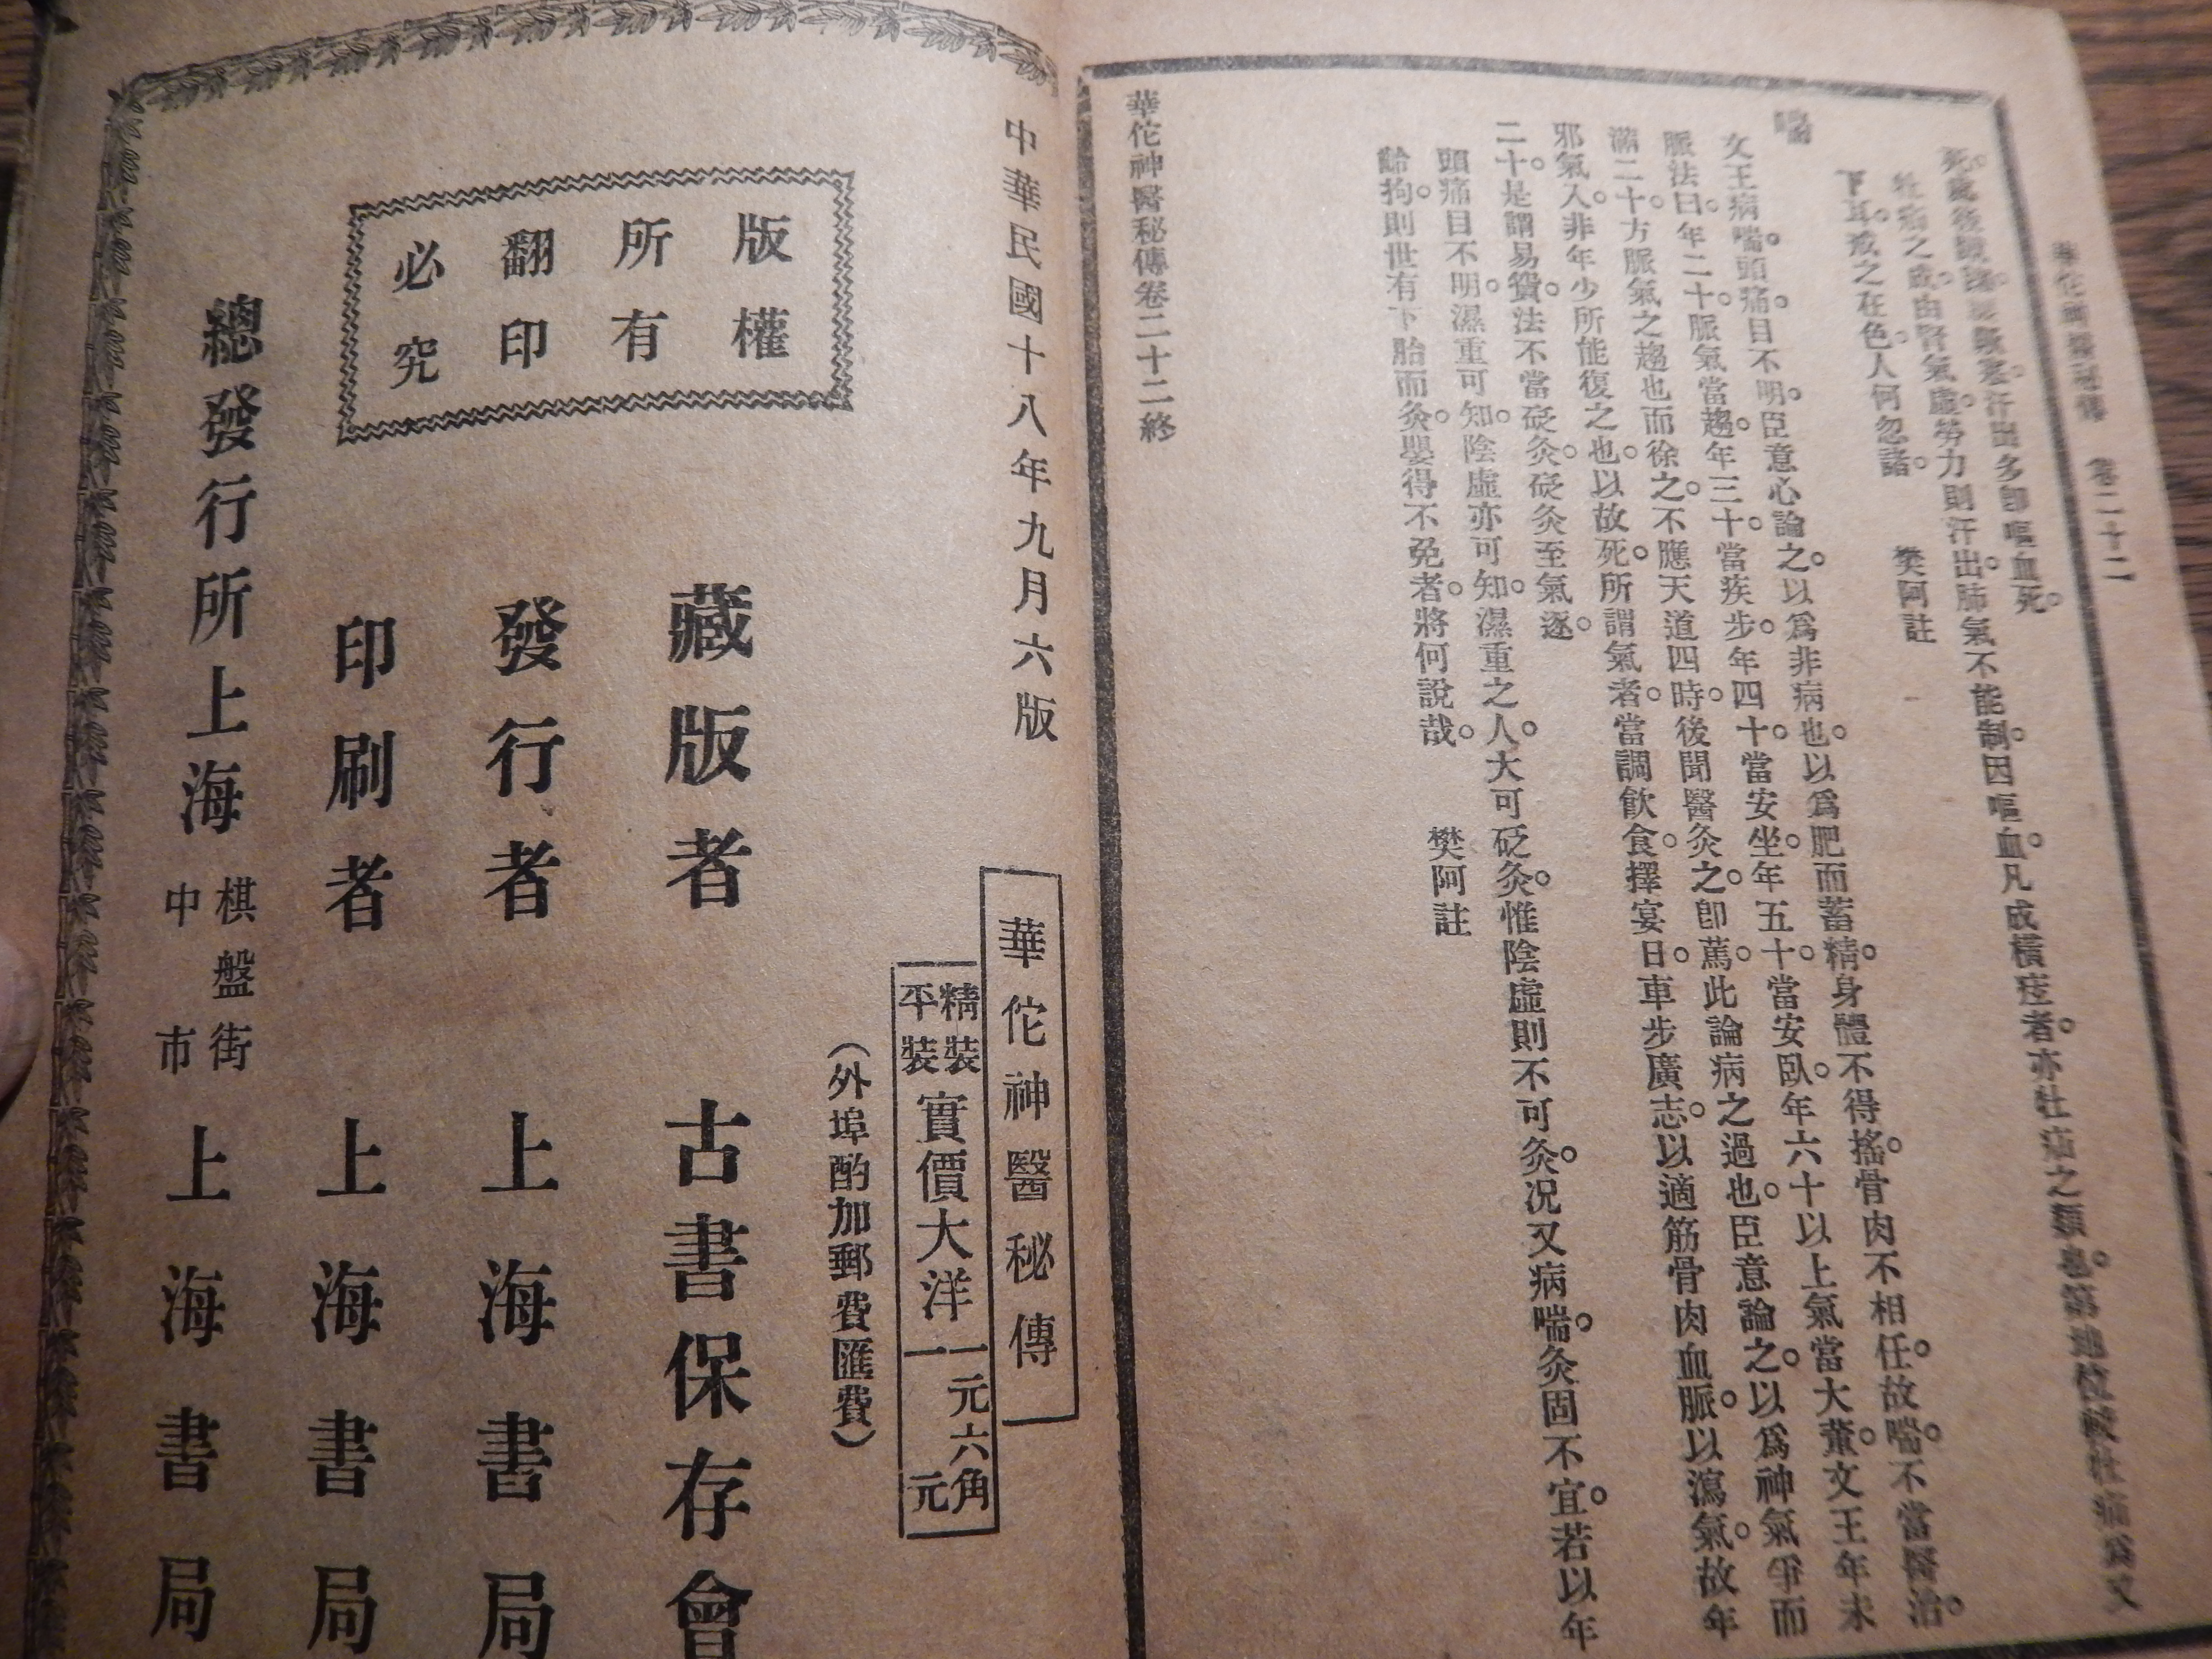 華佗神醫秘傳 卷二十二
多卽嘔血死。
牡疝之成由腎氣虛。勞力則汗出。肺氣不能制。因嘔血。凡成橫痃者。亦牡疝之類也。
下耳。戒之在色。人何忽諸。 樊阿註
喘
文王病喘。頭痛。目不明。臣意心論之。以爲非病也。以爲肥而蓄精。身體不得搖。骨肉不相任。故喘。不當醫治。
脈法曰。年二十。脈氣當趨。年三十。當疾步。年四十。當安坐。年五十。當安臥。年六十以上氣當大董。文王年未
滿二十。方脈氣之趨也而徐之。不應天道四時。後聞醫灸之。卽篤。此論病之過也。臣意論之。以爲神氣爭而
邪氣入。非年少所能復之也。以故死。所謂氣者。當調飲食。擇宴日。車步廣志。以適筋骨肉血脈。以瀉氣。故年
二十。是謂易貿。法不當砭灸。砭灸至氣逐。
頭痛目不明。濕重可知。陰虛亦可知。濕重之人。大可砭灸。惟陰虛則不可灸。况又病喘。灸固不宜。若以年
齡拘。則世有下胎而灸。嬰得不免者。將何說哉。 樊阿註
華佗神醫秘傳卷二十二終
中華民國十八年九月六版
華佗神醫秘傳
精裝 平裝 實價大洋 一元六角 一元
（外埠酌加郵費匯費）
版權
所有
翻印
必究
藏版者 古書保存會
發行者 上海書局
印刷者 上海書局
總發行所 上海 棋盤街 中市 上海書局